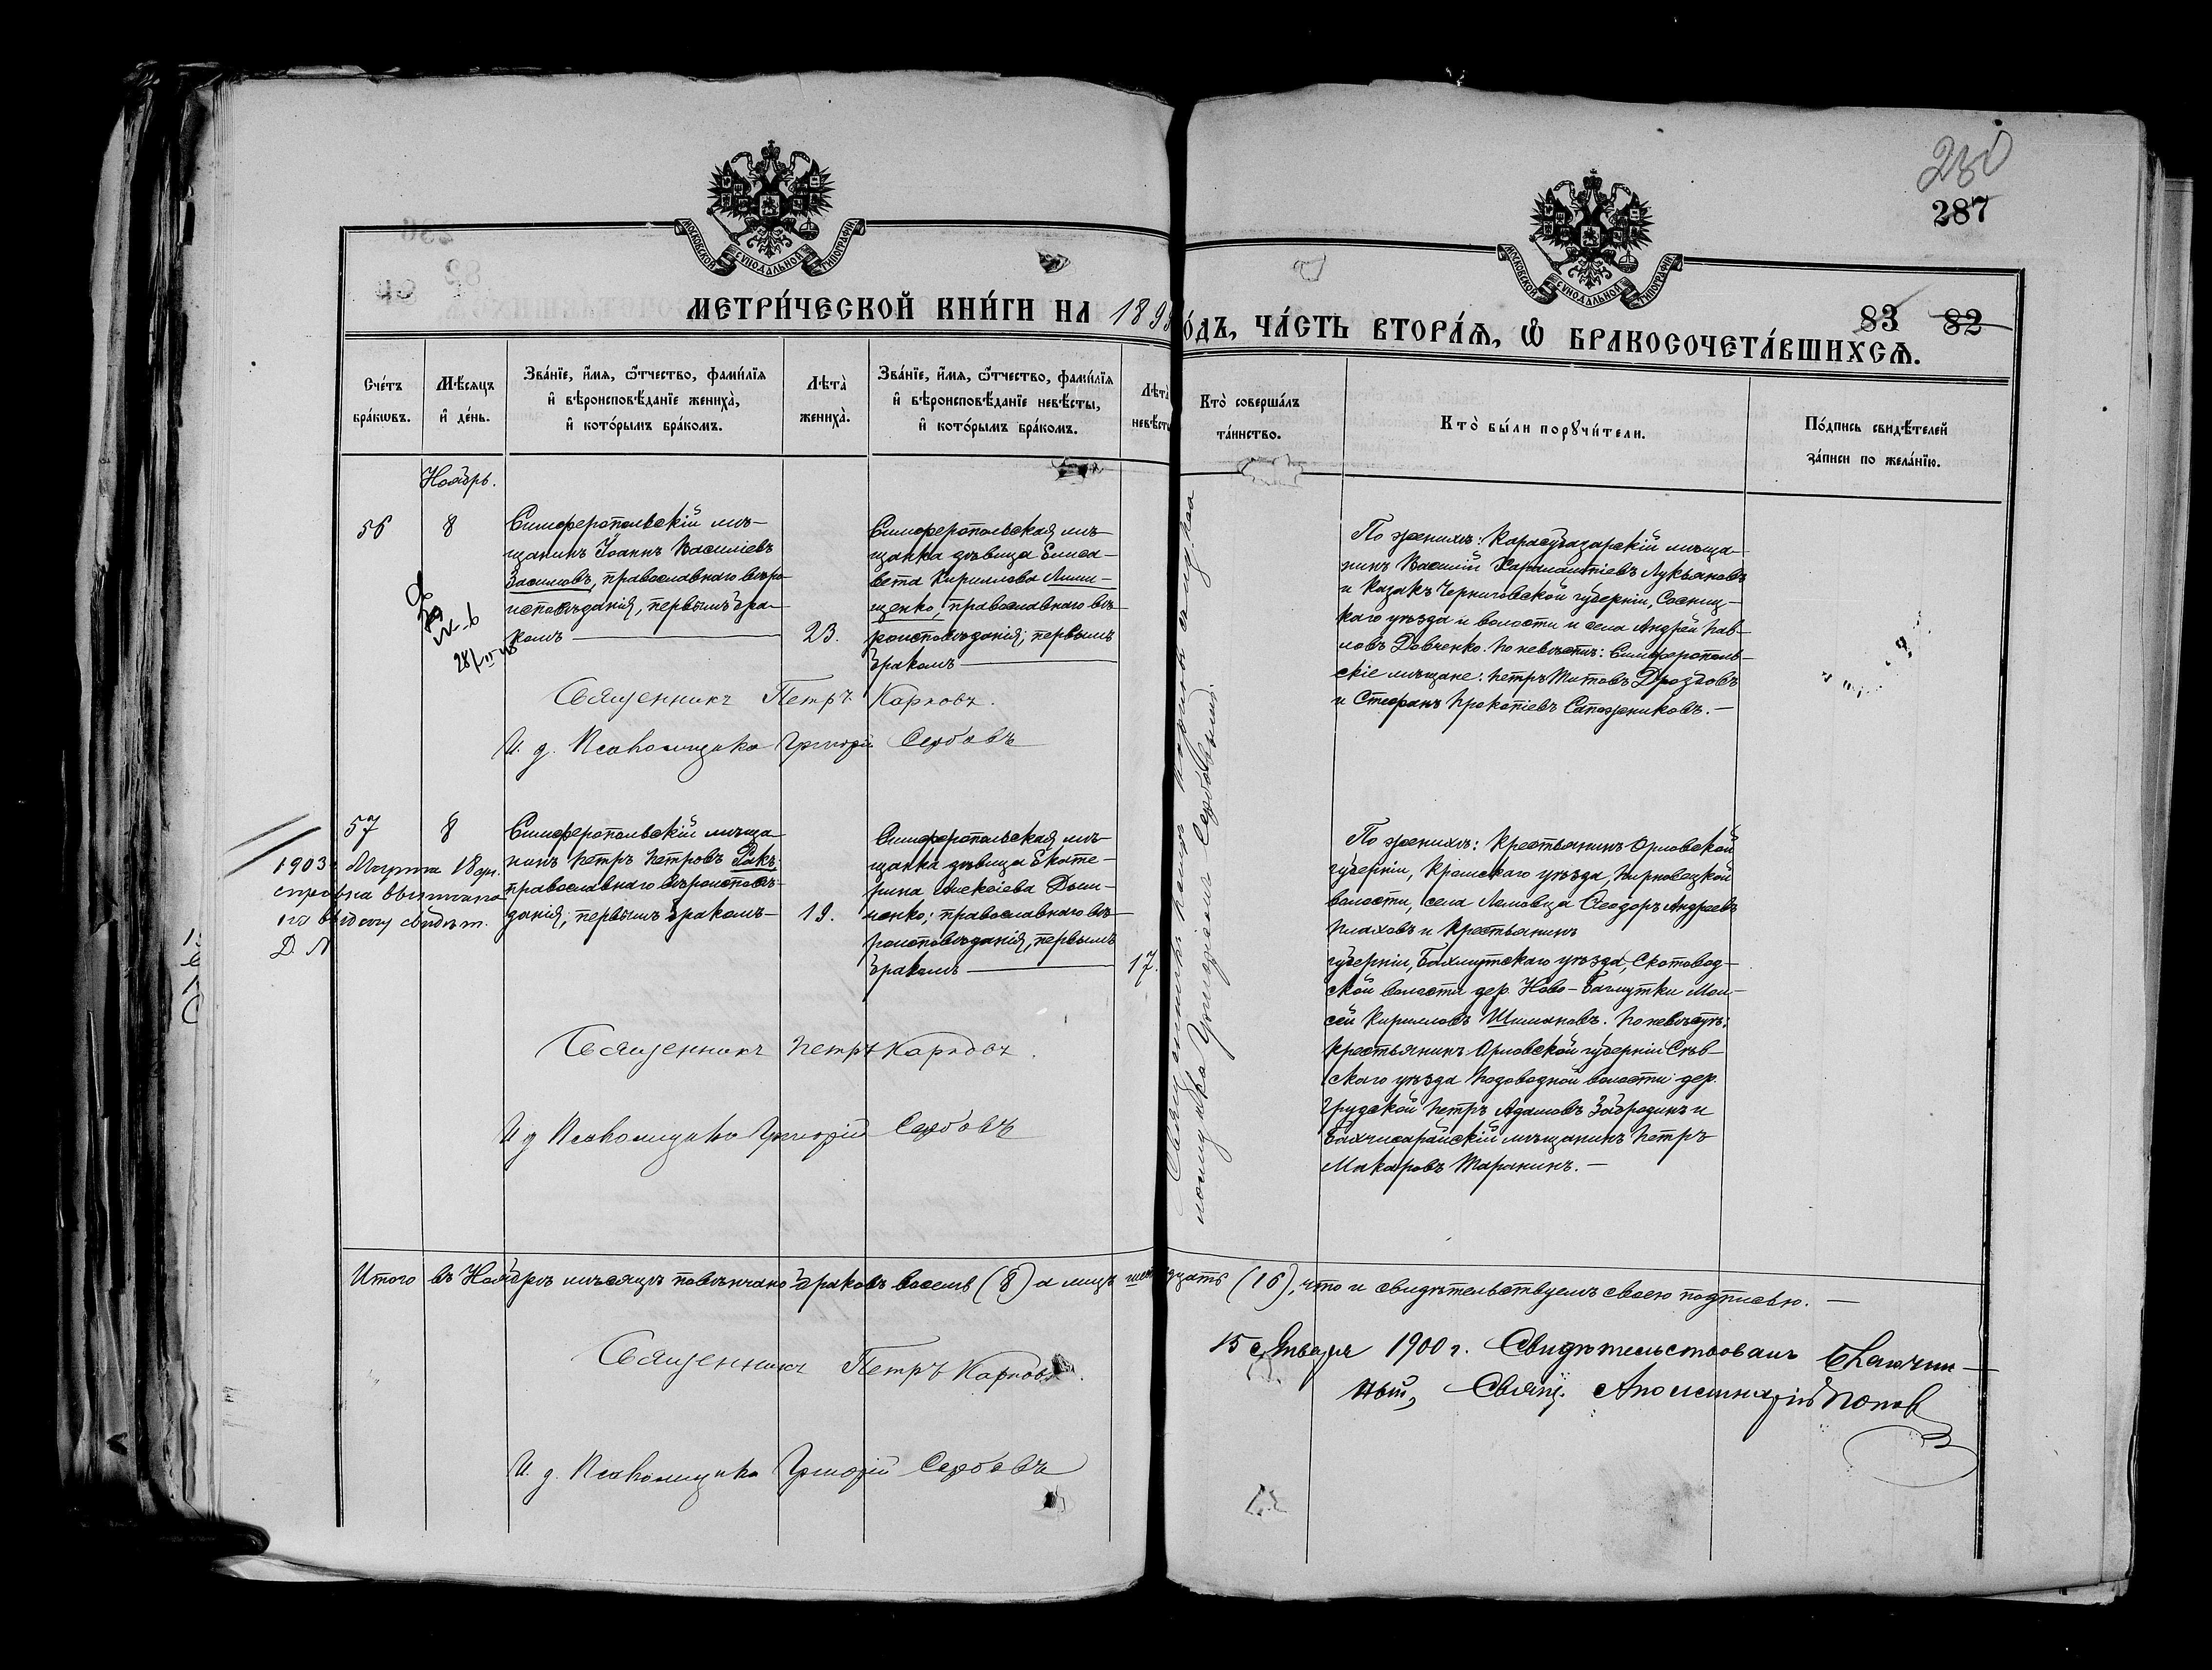 280
287
МОСКОВСКОЙ СѴНОДАЛЬНОЙ ТИПОГРАФІИ
МОСКОВСКОЙ СѴНОДАЛЬНОЙ ТИПОГРАФІИ
МЕТРИ́ЧЕСКОЙ КНИ́ГИ НА 189
О́ДЪ, ЧА́СТЬ ВТОРА́Ѧ, Ѽ БРАКОСОЧЕТА́ВШИХСѦ.
83 82
Сче́тъ бра́кѡвъ.
Мѣ́сяцъ и҆ де́нь.
Зва́нїе, и҆́мѧ, ѻ҆́тчество, фами́лїѧ
и҆ вѣроисповѣ́данїе жениха̀,
и҆ кото́рымъ бра́комъ.
Лѣта̀ жениха̀.
Зва́нїе, и҆́мѧ, ѻ҆́тчество, фами́лїѧ
и҆ вѣроисповѣ́данїе невѣ́сты,
и҆ кото́рымъ бра́комъ.
Лѣта̀
невѣ́сты
Кто̀ соверша́лъ
та́инство.
Кто̀ бы́ли порꙋчи́тели.
По́дпись свидѣ́телей
за́писи по жела́нїю.
Ноябрь.
56
8
Симферопольскій мѣ-
щанинъ Іоаннъ Василіевъ
Басиловъ, православнаго вѣро-
исповѣданія, первымъ бра-
комъ
23.
Симферопольская мѣ-
щанка дѣвица Елиса-
вета Кириллова Лими-
щенко, православнаго вѣ-
роисповѣданія; первымъ
бракомъ
По женихѣ: Карасубазарскій мѣща-
нинъ Василій Харлампіевъ Лукьяновъ
и Казакъ Черниговской губерніи, Сосниц-
каго уѣзда и волости и села Андрей Пав-
ловъ Довченко. По невѣстѣ: Симферополь-
скіе мѣщане: Петръ Титовъ Дроздовъ
и Стефанъ Прокопіевъ Сапожниковъ.
Священникъ Петръ Карповъ.
И. д. Псаломщика Григорій Сербовъ
57
8
Симферопольскій мѣща-
нинъ Петръ Петровъ Ракъ
православнаго вѣроисповѣ-
данія, первымъ бракомъ
19.
1903 г. Марта 18 дн.
справка
Д. N
Симферопольская мѣ-
щанка дѣвица Екате-
рина Алексіева Дьяч-
ченко; православнаго вѣ-
роисповѣданія, первымъ
бракомъ
17.
По женихѣ: Крестьянинъ Орловской
губерніи, Кромскаго уѣзда,
волости, села Ломовца Ѳеодоръ Андреевъ
Плаховъ и Крестьянинъ
губерніи, Бахмутскаго уѣзда, Скотовод-
ской волости дер. Ново-Бахмутки Мои-
сей Кирилловъ Шимановъ. По невѣстѣ:
Крестьянинъ Орловской губерніи Сѣв-
скаго уѣзда Подоводной волости дер.
Грудской Петръ Адамовъ Забродинъ и
Бахчисарайскій мѣщанинъ Петръ
Макаровъ Таранинъ.
Священникъ Петръ Карповъ.
И д Псаломщика Григорій Сербовъ
псаломщика Григоріемъ Сербовымъ.
Итого въ Ноябрѣ мѣсяцѣ повѣнчано браковъ восемь (8) а лицъ шестнадцать (16), что и свидѣтельствуемъ своею подписью.
Священникъ Петръ Карповъ.
И. д. Псаломщика Григорій Сербовъ
15 Января 1900 г. Свидѣтельствовалъ Благочин-
ный, Свящ. Аполлинарій Попов